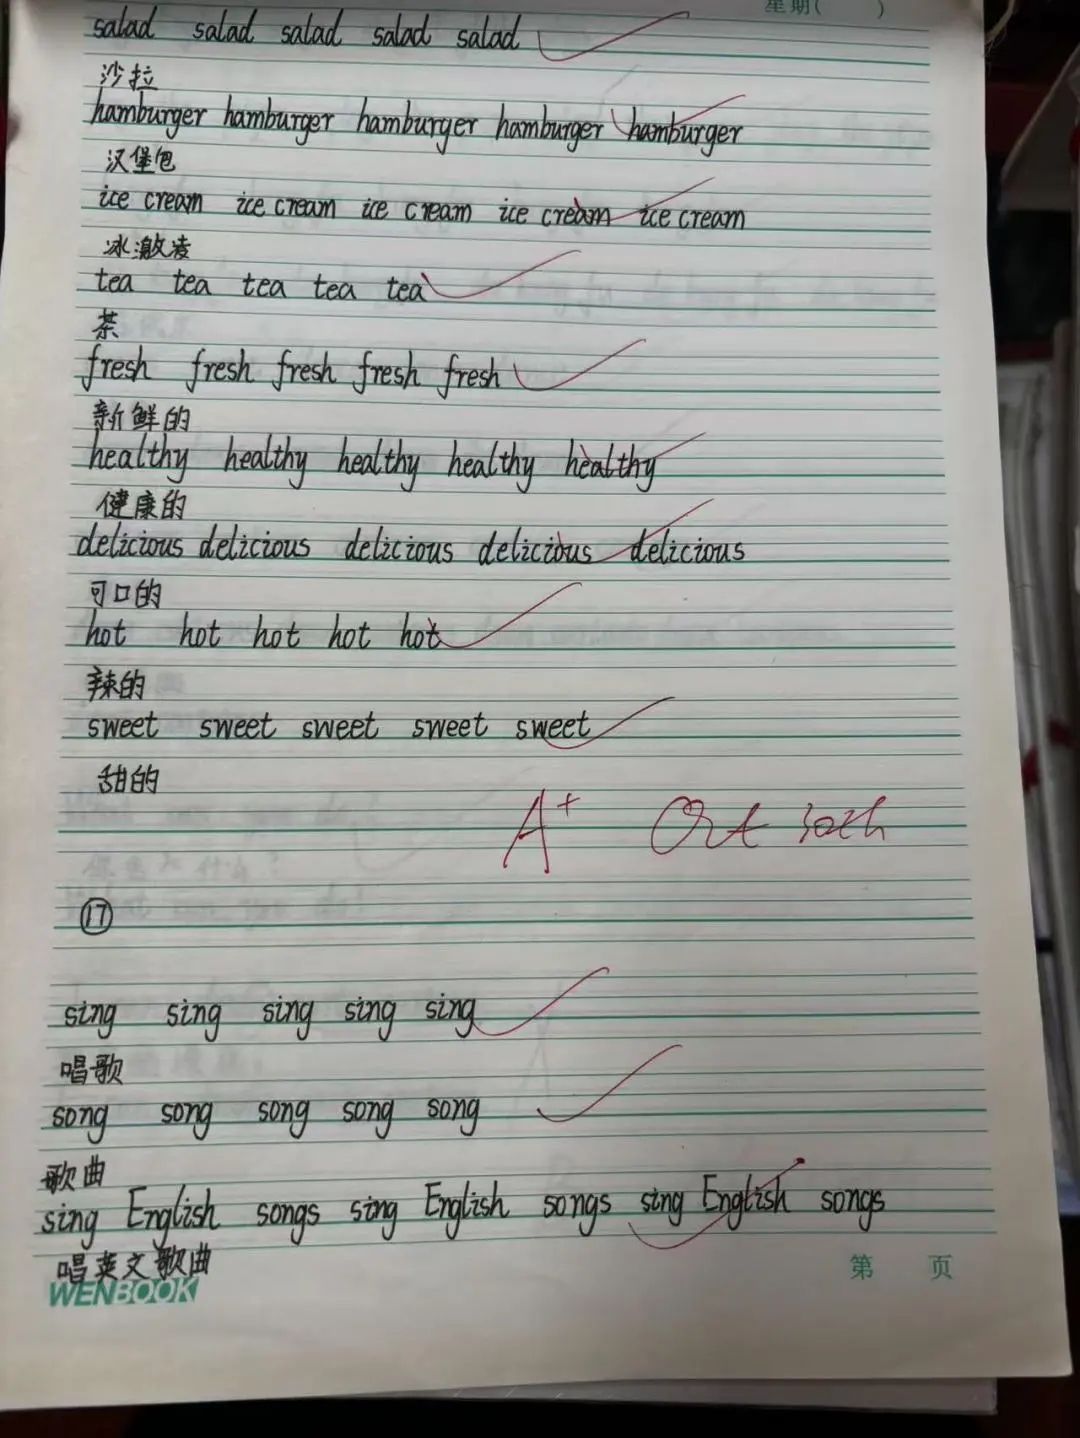 星期( )
salad salad salad salad salad
沙拉
hamburger hamburger hamburger hamburger hamburger
汉堡包
ice cream ice cream ice cream ice cream ice cream
冰激凌
tea tea tea tea tea
茶
fresh fresh fresh fresh fresh
新鲜的
healthy healthy healthy healthy healthy
健康的
delicious delicious delicious delicious delicious
可口的
hot hot hot hot hot
辣的
sweet sweet sweet sweet sweet
甜的
A+ Oct 30th
⑰
sing sing sing sing sing
唱歌
song song song song song
歌曲
sing English songs sing English songs sing English songs
唱英文歌曲
WENBOOK
第 页